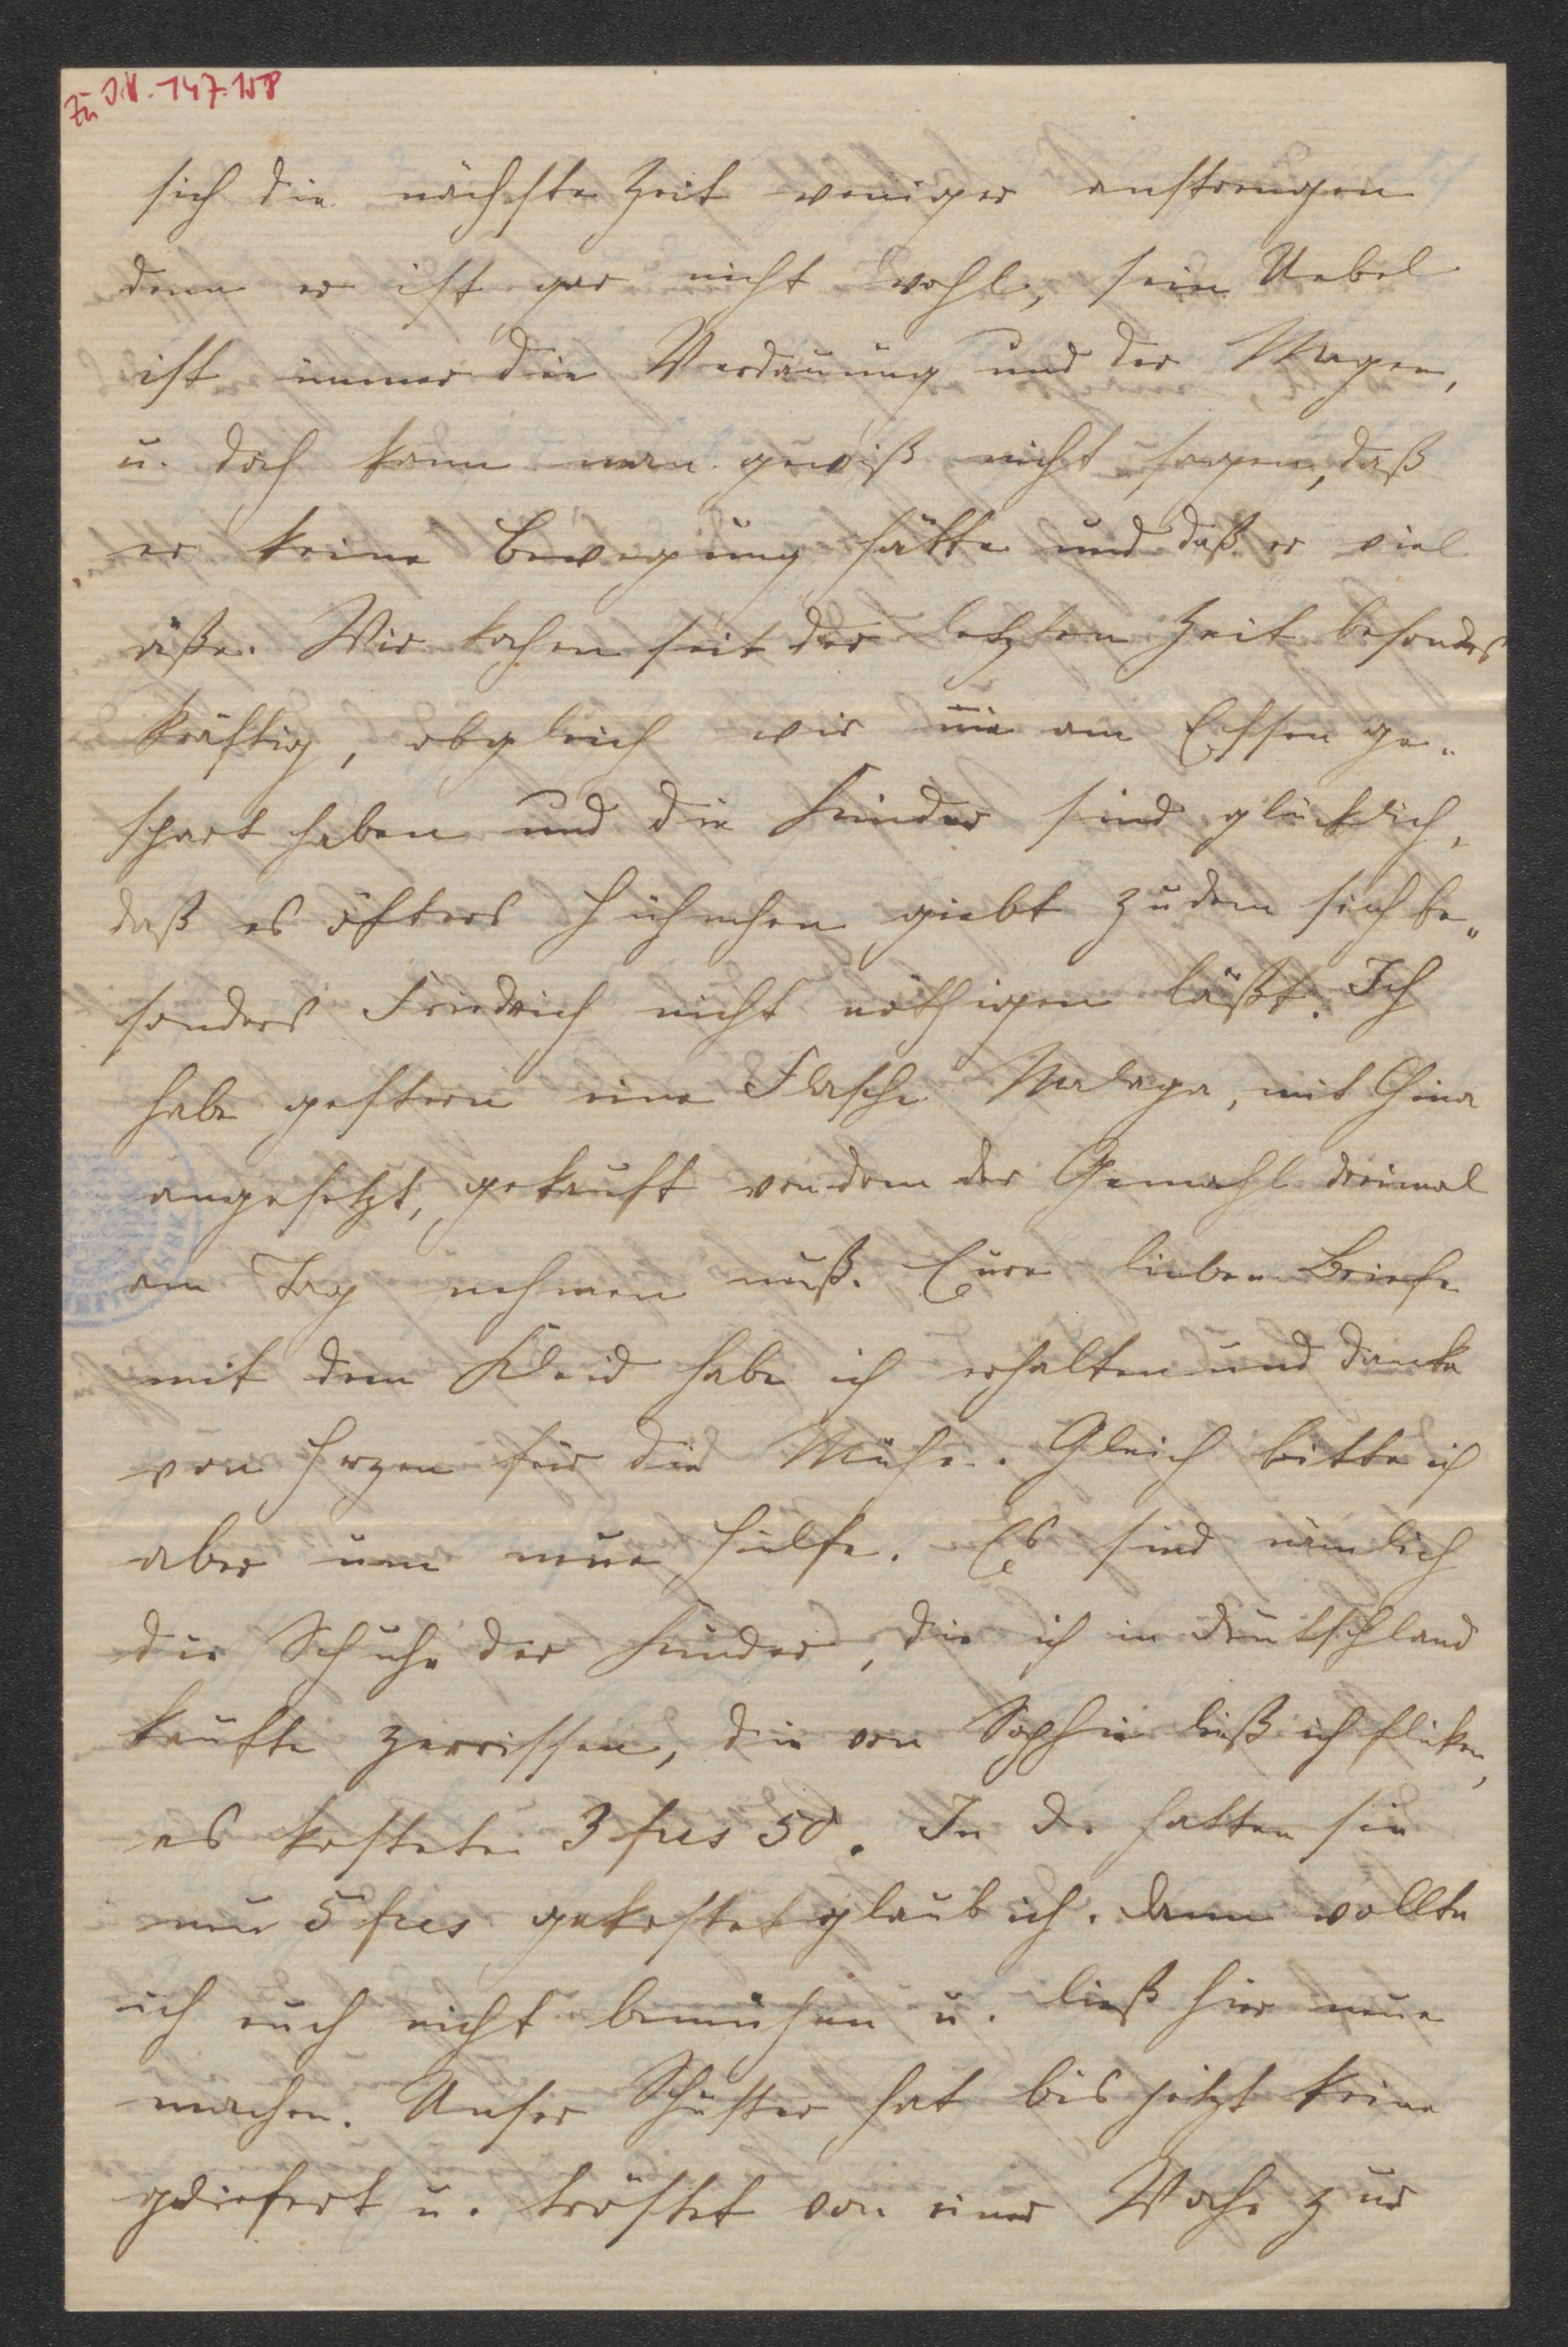 Zu I.N. 147.158
sich die nächste Zeit weniger anstrengen
denn er ist gar nicht wohl, sein Uebel
ist immer die Verdauung und der Magen,
u. doch kann man gewiß nicht sagen, daß
er keine Bewegung hätte und daß er viel
äße. Wir kochen seit der letzten Zeit besonders
kräftig, obgleich wir nie am Essen ge-
spart haben und die Kinder sind glücklich,
daß es öfters Hühnchen giebt zu dem sich be-
sonders Friedrich nicht nöthigen läßt. Ich
habe gestern eine Flasche Malaga, mit China
angesetzt, gekauft von dem der Gemahl dreimal
am Tag nehmen muß. Eure lieben Briefe
mit dem Kleid habe ich erhalten und danke
von Herzen für die Mühe. Gleich bitte ich
aber um neue Hülfe. Es sind nämlich
die Schuhe der Kinder, die ich in Deutschland
kaufte zerrissen, die von Sophie ließ ich flicken,
es kostete 3 frcs 50. In D. hatten sie
nur 5 frcs gekostet glaub ich. Dann wollte
ich euch nicht bemühen u. ließ hier neue
machen. Unser Schuster hat bis jetzt keine
geliefert u. tröstet von einer Woche zur